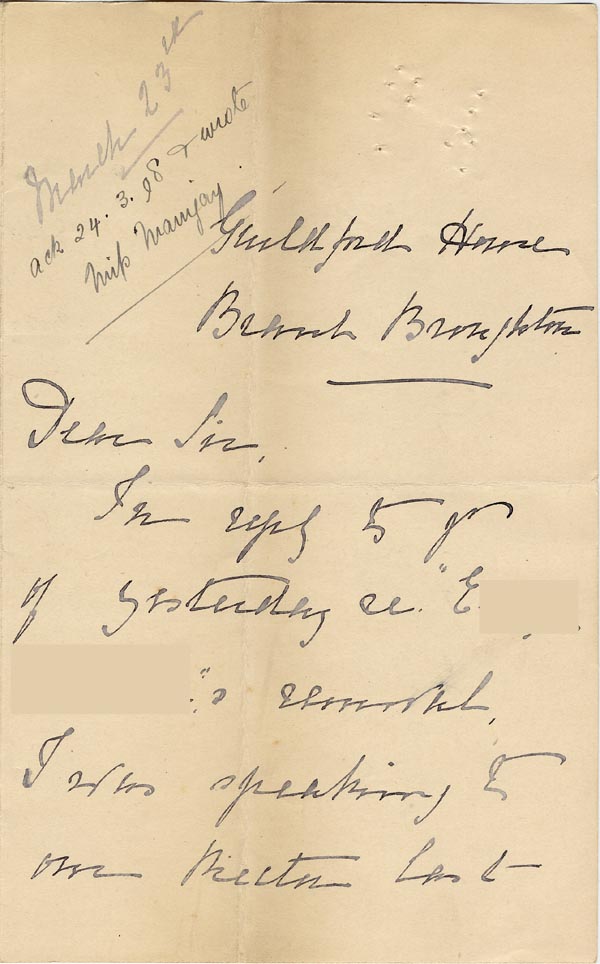 March 23rd
ack 24.3.98 & wrote
Miss
Guildford House
Branch Broughton
Dear Sir,
In reply to yrs
of yesterday re. "E.
"'s removal,
I was speaking to
our Rector last